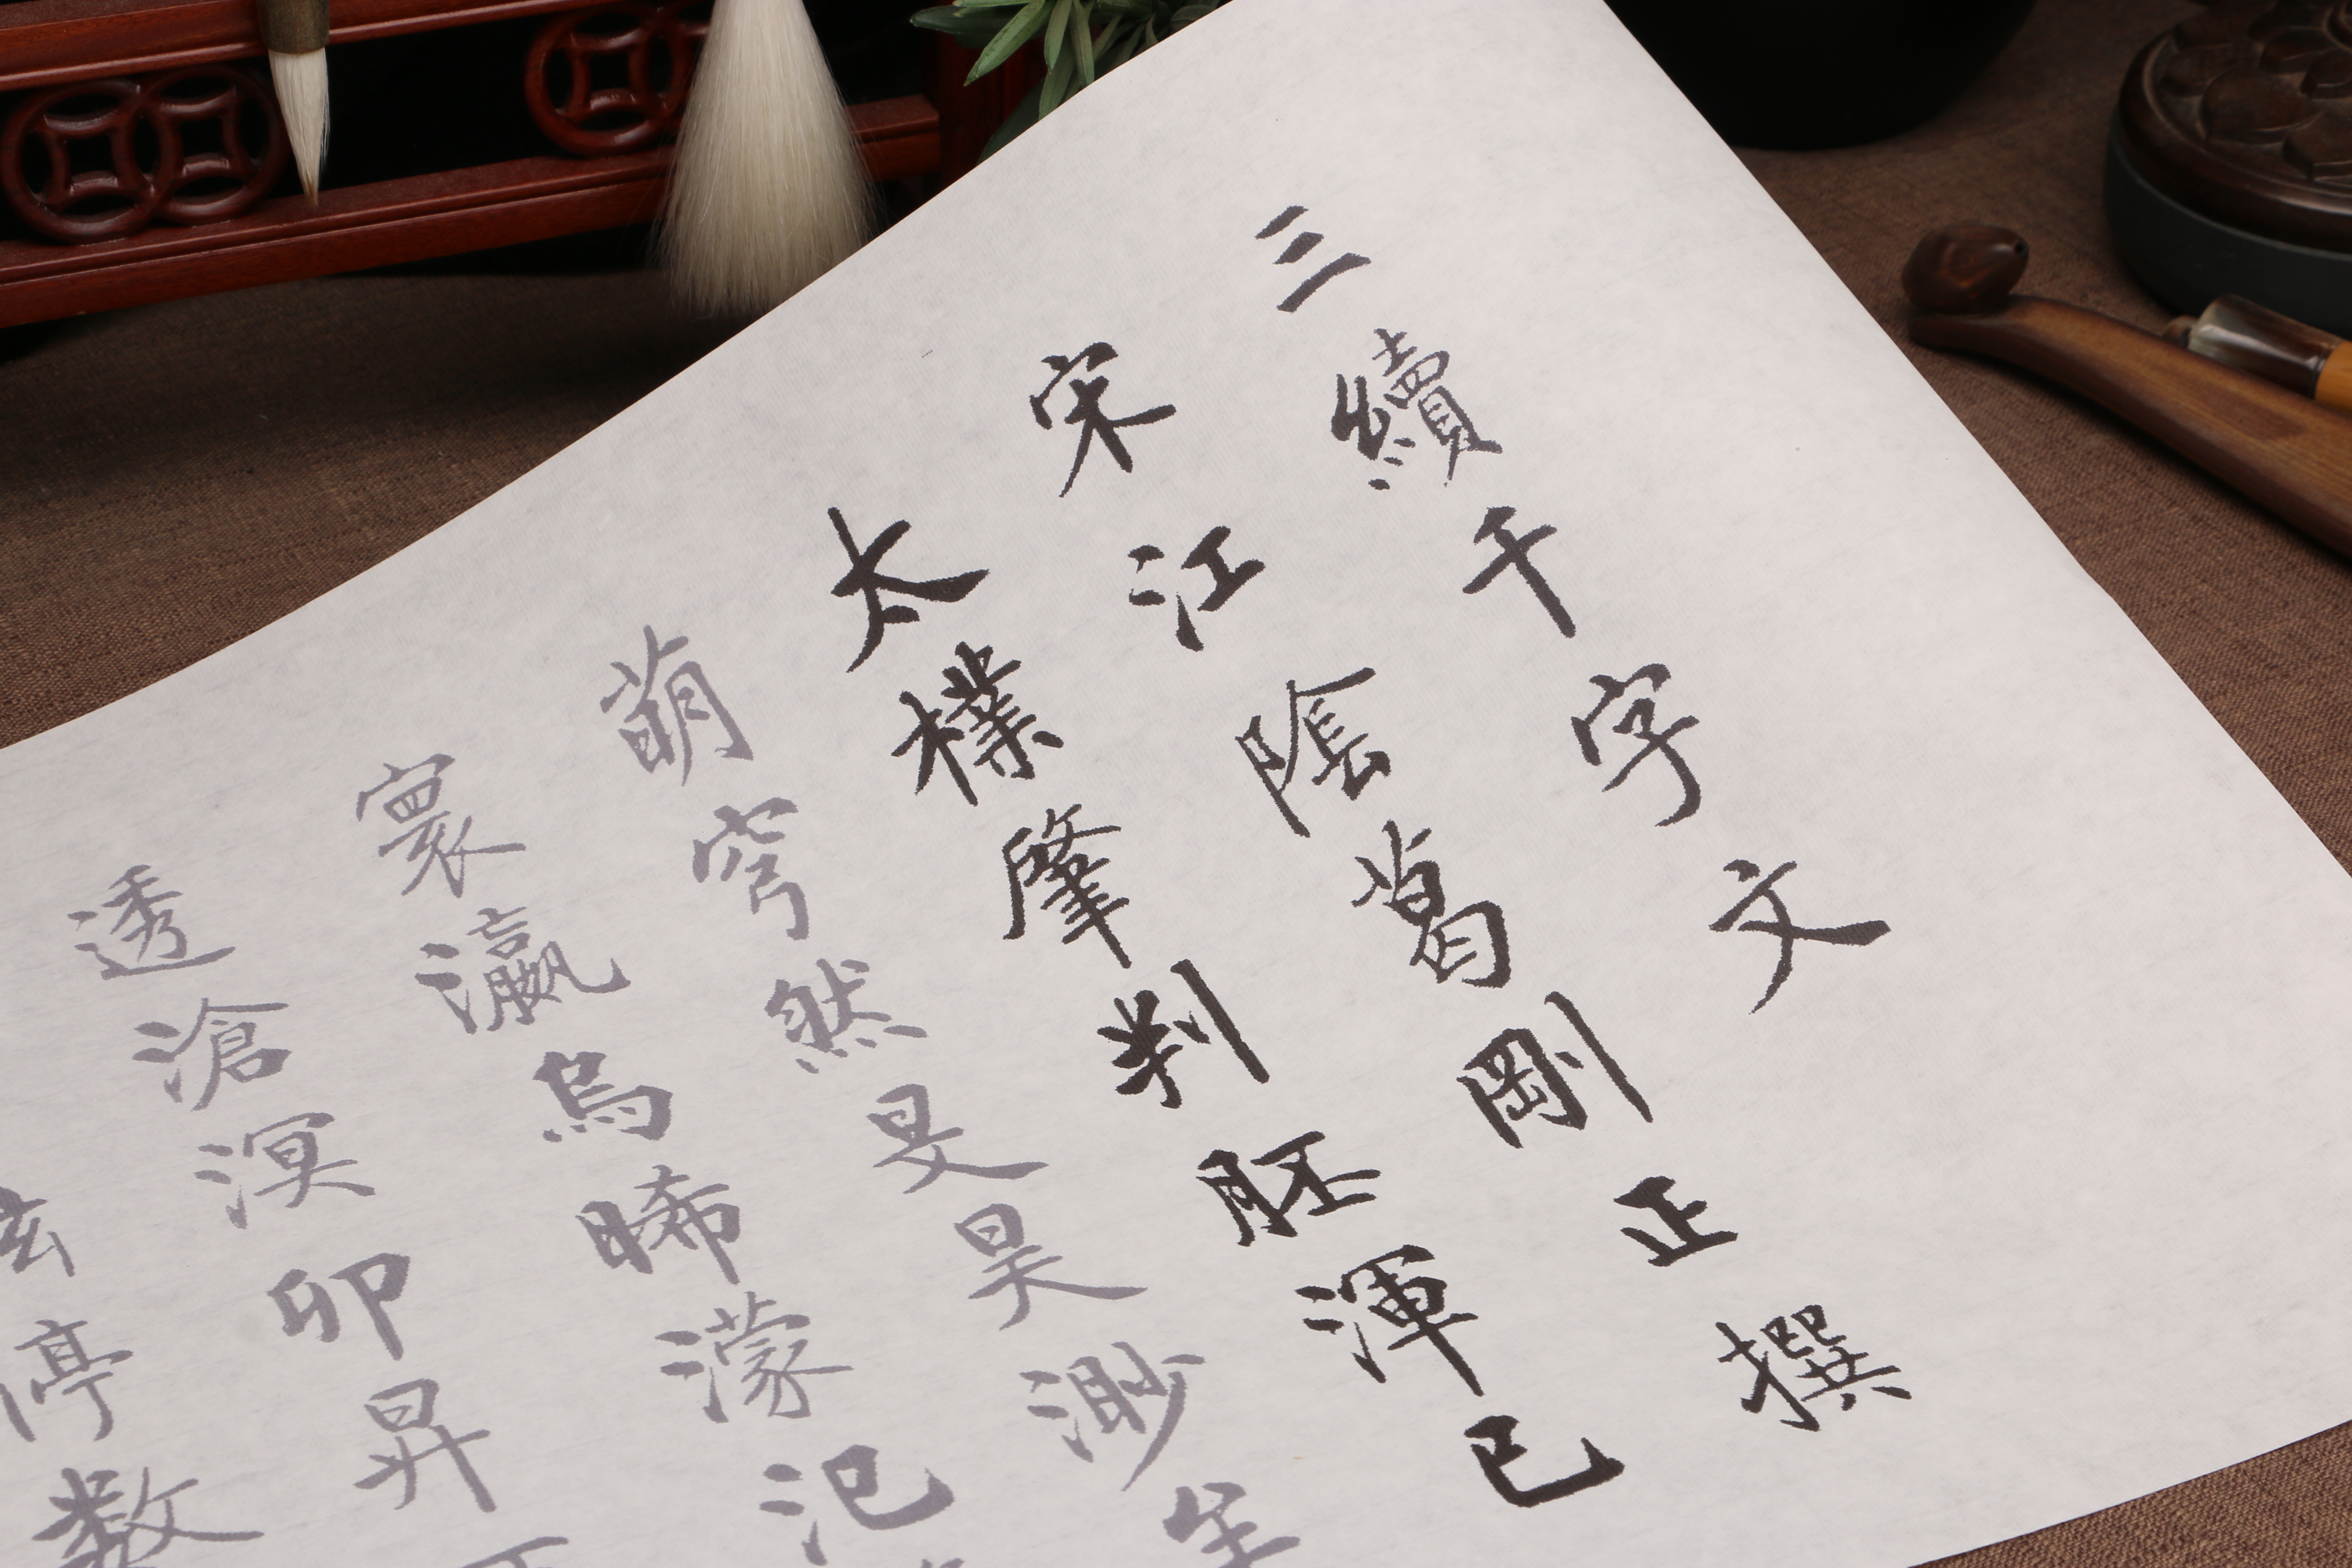 三續千字文
宋江陰葛剛正撰
太樸肇判胚渾已
萌穹然旻昊渺
寰瀛烏晞濛汜
透滄溟卯昇
停数